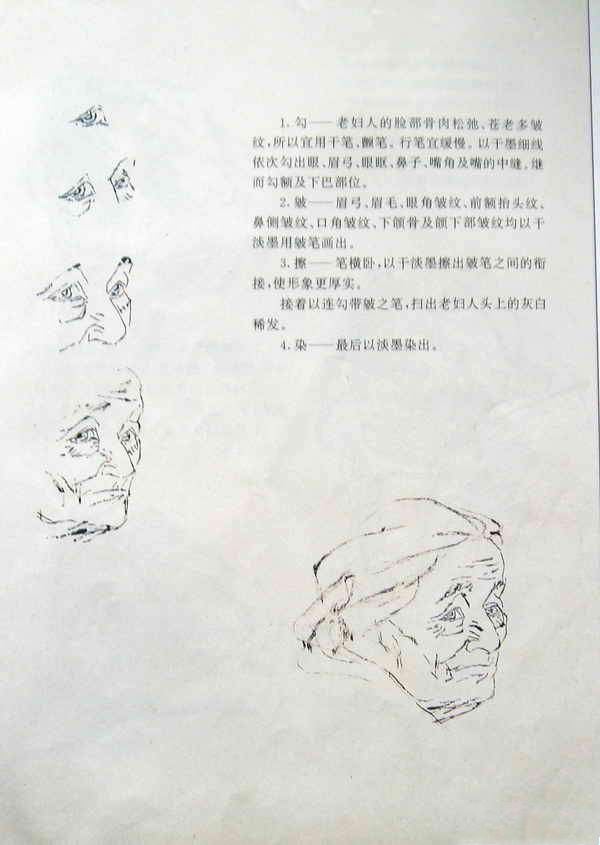 1. 勾——老妇人的脸部骨肉松弛、苍老多皱
纹，所以宜用干笔、颤笔。行笔宜缓慢。以干墨细线
依次勾出眼、眉弓、眼眶、鼻子、嘴角及嘴的中缝。继
而勾额及下巴部位。
2. 皴——眉弓、眉毛、眼角皱纹、前额抬头纹、
鼻侧皱纹、口角皱纹、下颌骨及颌下部皱纹均以干
淡墨用皴笔画出。
3. 擦——笔横卧，以干淡墨擦出皴笔之间的衔
接，使形象更厚实。
接着以连勾带皴之笔，扫出老妇人头上的灰白
稀发。
4. 染——最后以淡墨染出。